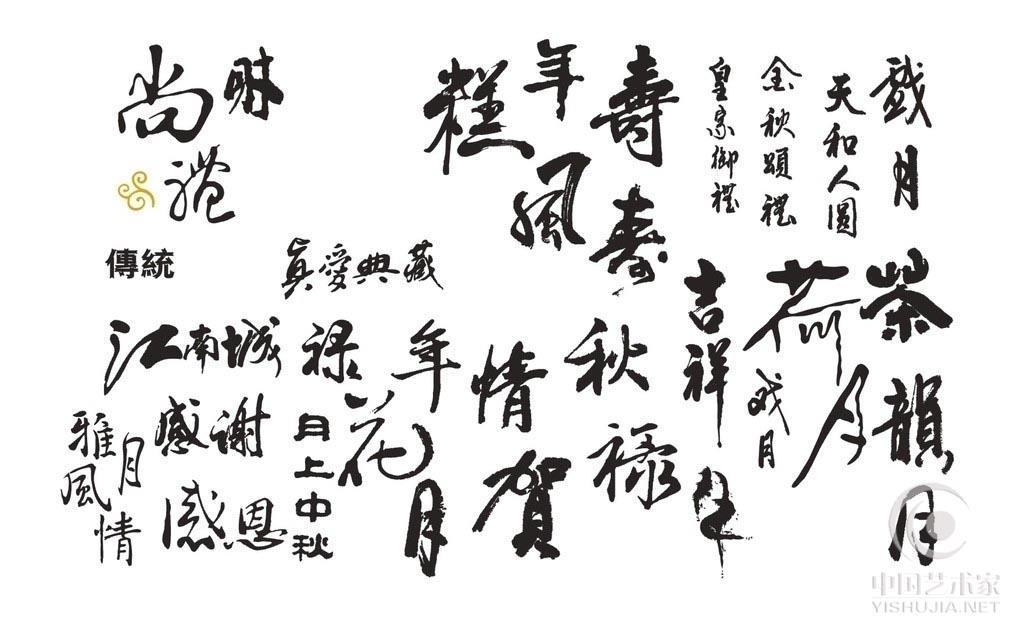 尚
禮
傳統
年
糕
風
壽
壽
皇家御禮
天和人圓
戲月
眞愛典藏
江南城
禄
年
情
秋
吉祥
荷月
茶韻月
感謝
感恩
雅風
月
情
月上中秋
花
月
賀
禄
戏月
中国艺术家
YISHUJIA.NET